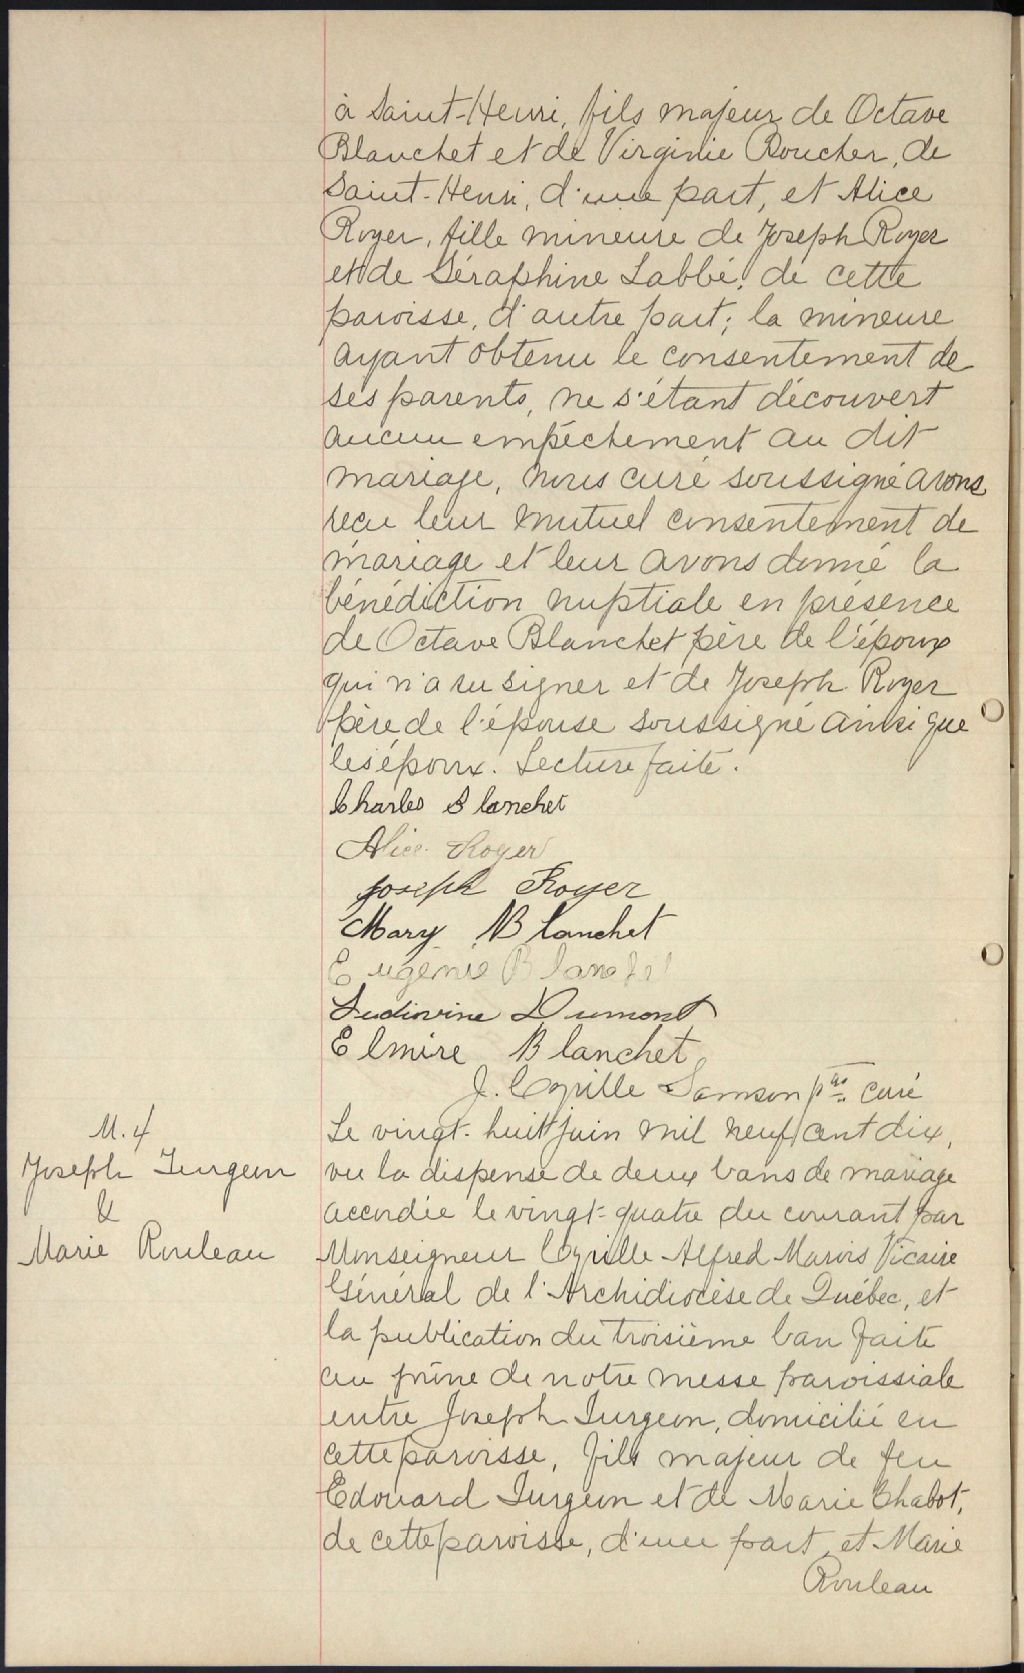 à Saint-Henri, fils majeur de Octave
Blanchet et de Virginie Boucher, de
Saint-Henri, d'une part, et Alice
Royer, fille mineure de Joseph Royer
et de Séraphine Labbé, de cette
paroisse, d'autre part; la mineure
ayant obtenu le consentement de
ses parents, ne s'étant découvert
aucun empêchement au dit
mariage, nous curé soussigné avons
reçu leur mutuel consentement de
mariage et leur avons donné la
bénédiction nuptiale en présence
de Octave Blanchet père de l'époux
qui n'a su signer et de Joseph Royer
père de l'épouse soussigné ainsi que
les époux. Lecture faite.
Charles Blanchet
Alice Royer
Joseph Royer
Mary Blanchet
Eugénie Blanchet
Ludivine Dumont
Elmire Blanchet
J. Cyrille Samson ptre curé
M. 4
Joseph Turgeon
&
Marie Rouleau
Le vingt-huit juin mil neuf cent dix,
vu la dispense de deux bans de mariage
accordée le vingt-quatre du courant par
Monseigneur Cyrille Alfred Marois Vicaire
Général de l'Archidiocèse de Québec, et
la publication du troisième ban faite
au prône de notre messe paroissiale
entre Joseph Turgeon, domicilié en
cette paroisse, fils majeur de feu
Edouard Turgeon et de Marie Chabot,
de cette paroisse, d'une part, et Marie
Rouleau